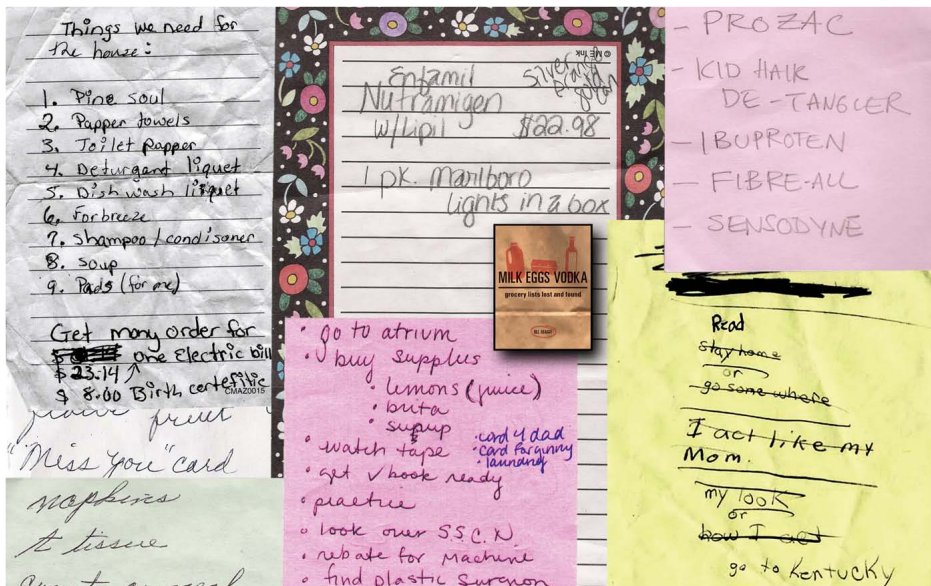 Things we need for
the house:
1. Pine soul
2. Papper towels
3. Toilet papper
4. Deturgent liquet
5. Dish wash liquet
6. Forbreeze
7. Shampoo/condisoner
8. Soup
9. Pads (for me)
Get many order for
one Electric bill
$ 23.14
$ 8.00 Birth certefitic
CMAZ0015
fruit
"Miss You" card
napkins
tissue
© ME Ink
Enfamil
Nutramigen
w/Lipil $22.98
Silver
gold
can
1 pk. marlboro
lights in a box
MILK EGGS VODKA
grocery lists lost and found
go to atrium
buy supplus
lemons (juice)
brita
watch tape
get ✓book ready
practice
look over S.S.C.N.
rebate for machine
find plastic surgeon
card 4 dad
card for ginny
laundry
- PROZAC
- KID HAIR
DE-TANGLER
- IBUPROTEN
- FIBRE-ALL
- SENSODYNE
Read
stay home
or
go some where
I act like my
Mom.
my look
or
how I act
go to Kentucky